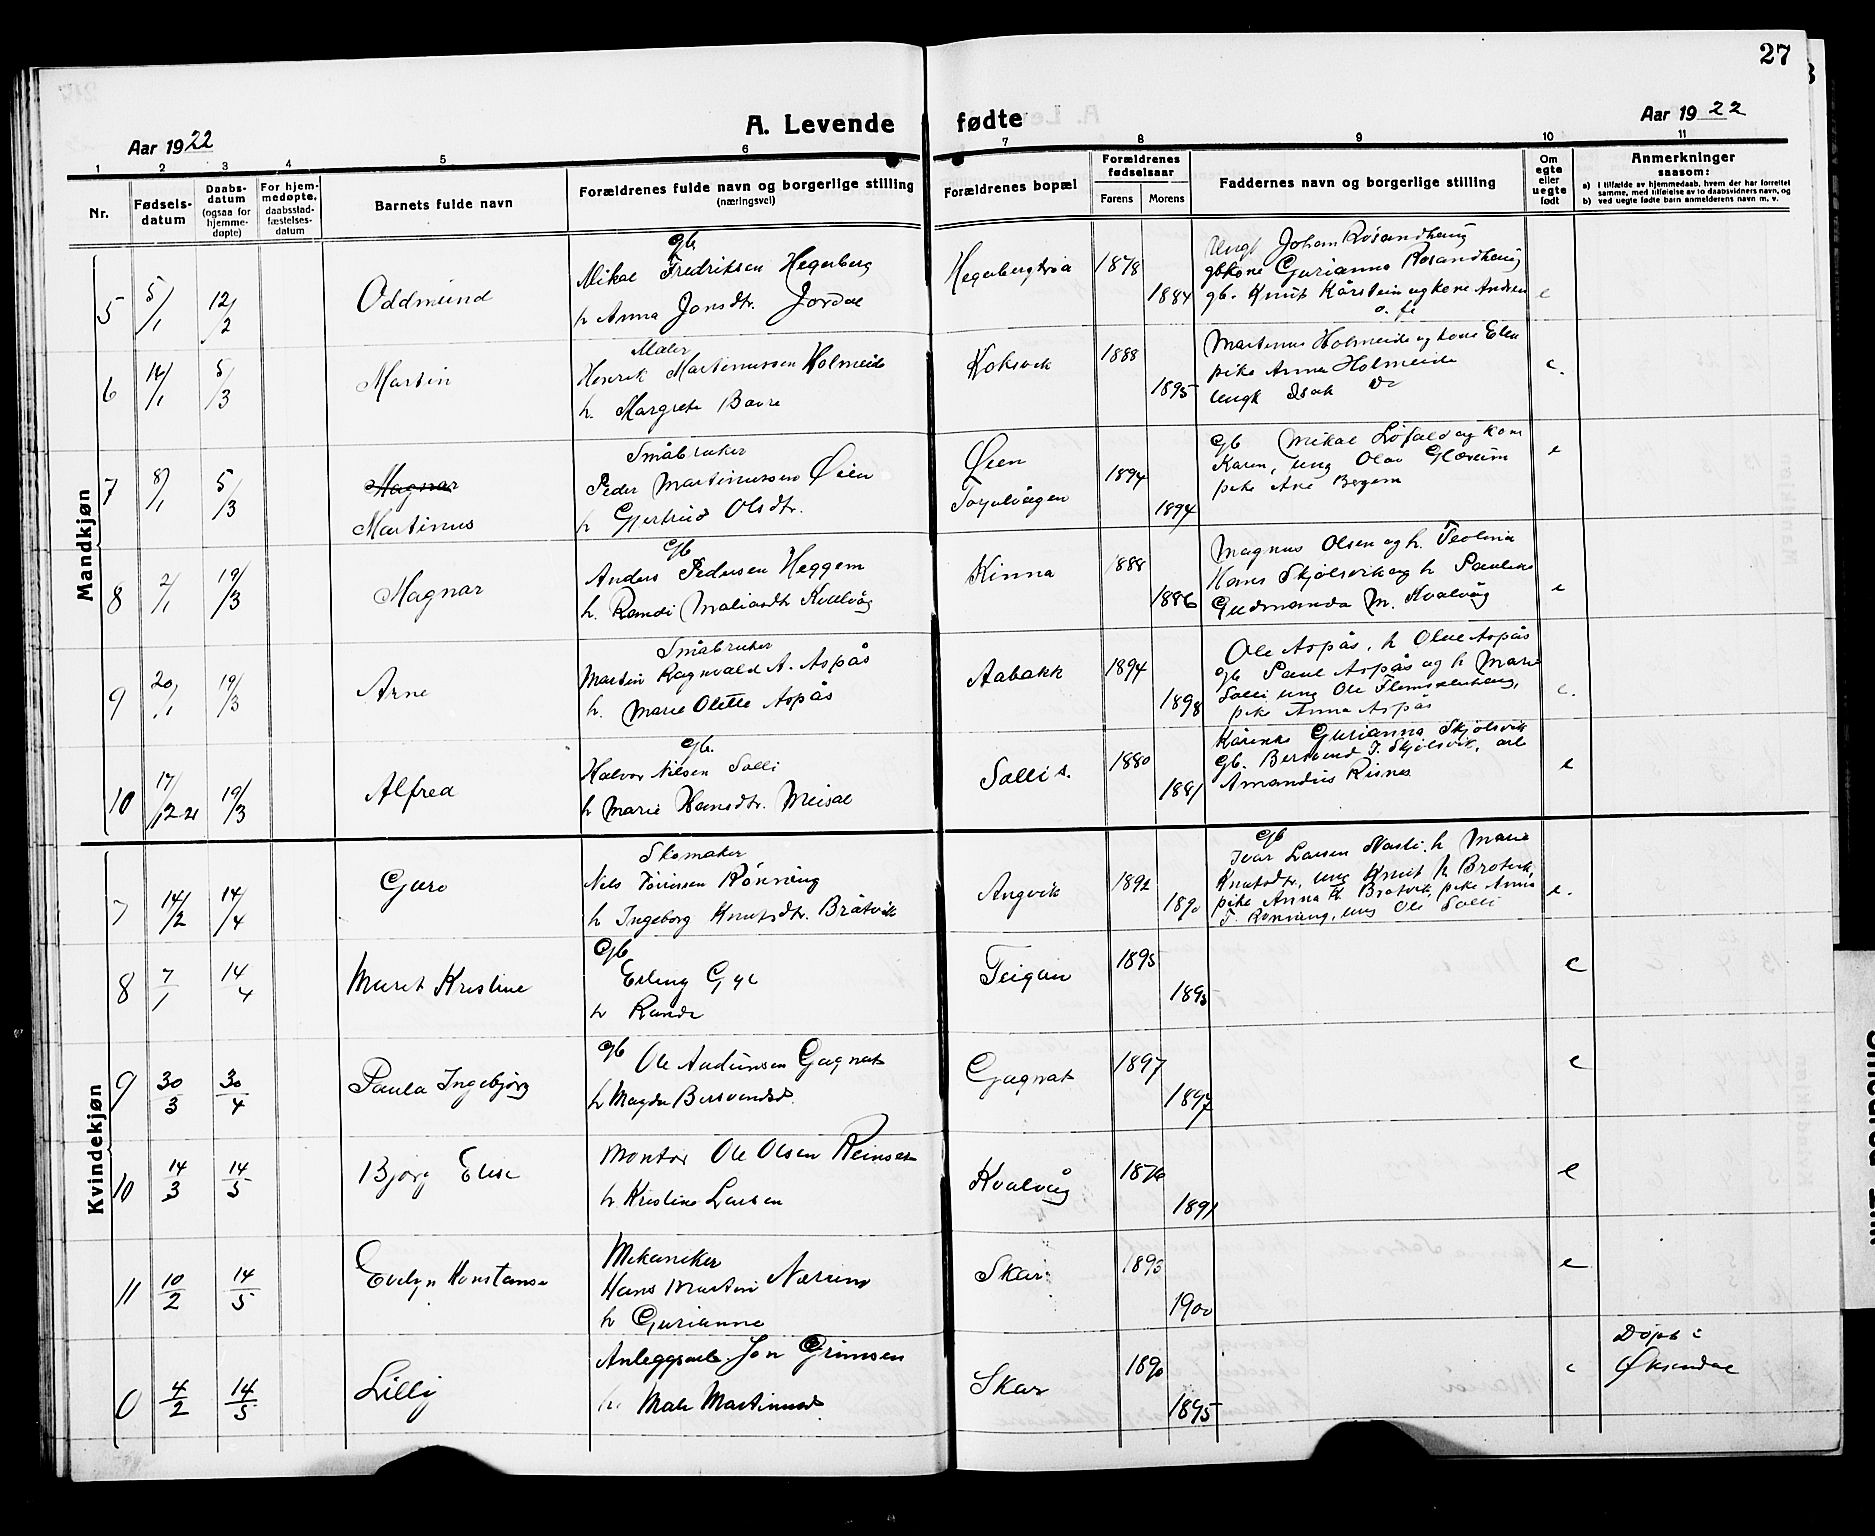 27
A. Levende fødte
Aar 1922
Aar 1922
1 2 3 4 5 6 7 8 9 10 11
Nr.
Fødsels-
datum
Daabs-
datum
(ogsaa for
hjemme-
døpte)
For hjem-
medøpte,
daabsstad-
fæstelses-
datum
Barnets fulde navn
Forældrenes fulde navn og borgerlige stilling
(næringsvei)
Forældrenes bopæl
Forældrenes
fødselsaar
Farens Morens
Faddernes navn og borgerlige stilling
Om
egte
eller
uegte
født
Anmerkninger
saasom:
a) i tilfælde av hjemmedaab, hvem der har forrettet
samme, med tilføielse av to daabsvidners navn, og
b) ved uegte fødte barn anmelderens navn m. v.
Mandkjøn
5 5/1 12/2 Oddmund
gb
Mikal Fredriksen Hegerberg
h Anna Jonsdtr. Jordal
Hegerbergtrøa 1878 1884
Ungk Johan Rosandhaug
gbkone Gurianna Rosandhaug
gb. Knut Kårstein og kone
e
6 14/1 5/3 Martin
Maler
Henrik Martinussen Holmeide
h. Margrete Bavre
Koksvik 1888 1895
Martinus Holmeide og kone Elen
pike Anna Holmeide
Ungk Isak Do
e.
7 8/1 5/3 Magnar
Martinus
Småbruker
Peder Martinussen Øien
h Gjertrud Olsdtr.
Øien
Torjulvågen
1894 1894
gb Mikal Løfald og kone
Karen, ung Olav Glærum
pike Ane Bergem
e
8 2/1 19/3 Magnar
gb
Anders Pedersen Heggem
h. Randi Maliasdtr Kvalvåg
Kinna 1888 1886
Magnus Olsen og h. Teolina
Hans Skjølsvik og h Pauline
Gudmunda M. Kvalvåg
e
9 20/1 19/3 Arne
Småbruker
Martin Ragnvald A. Aspås
h. Marie Olette Aspås
Aabakk 1894 1898
Ole Aspås, h Oline Aspås
gb Paul Aspås og h Marie
Solli ung Ole
pike Anna Aspås
e.
10 17/12-21 19/3 Alfred
gb.
Halvor Nilsen Solli
h Marie Hansdtr. Meisal
Solli s. 1880 1881
Gurianna Skjølsvik
gb. Bersvend J. Skjølsvik, arb
Amandus Risnes
e
Kvindekjøn
7 14/2 14/4 Guro
Skomaker
Nils Rønning
h Ingeborg Knutsdtr. Bråtvik
Angvik 1892 1890
gb
Ivar Larsen h Marie
Knutsdtr, ung Knut K Brotvik,
pike Anna K Brotvik, pike Anna
T. Rønning, ung Ole Solli
e.
8 7/1 14/4 Marit Kristine
gb
Erling Gyl
h Randi
Teigan 1895 1895
e
9 30/3 30/4 Paula Ingebjørg
gb Ole Audunsen Gagnat
h Magda Bersvendsd.
Gagnat 1897 1897
e
10 14/3 14/5 Bjørg Elise
Montør Ole Olsen Reinset
h. Kristine Larsen
Kvalvåg 1876 1891
e
11 10/2 14/5 Evelyn Konstanse
Mekaniker
Hans Martin Nærum
h Gurianne
Skar 1893 1900
e
0 4/2 14/5 Lilly
Anleggsarb. Jon Grimsen
h. Mali Martinusd
Skar 1890 1895
e
Døpt i
Øksendal